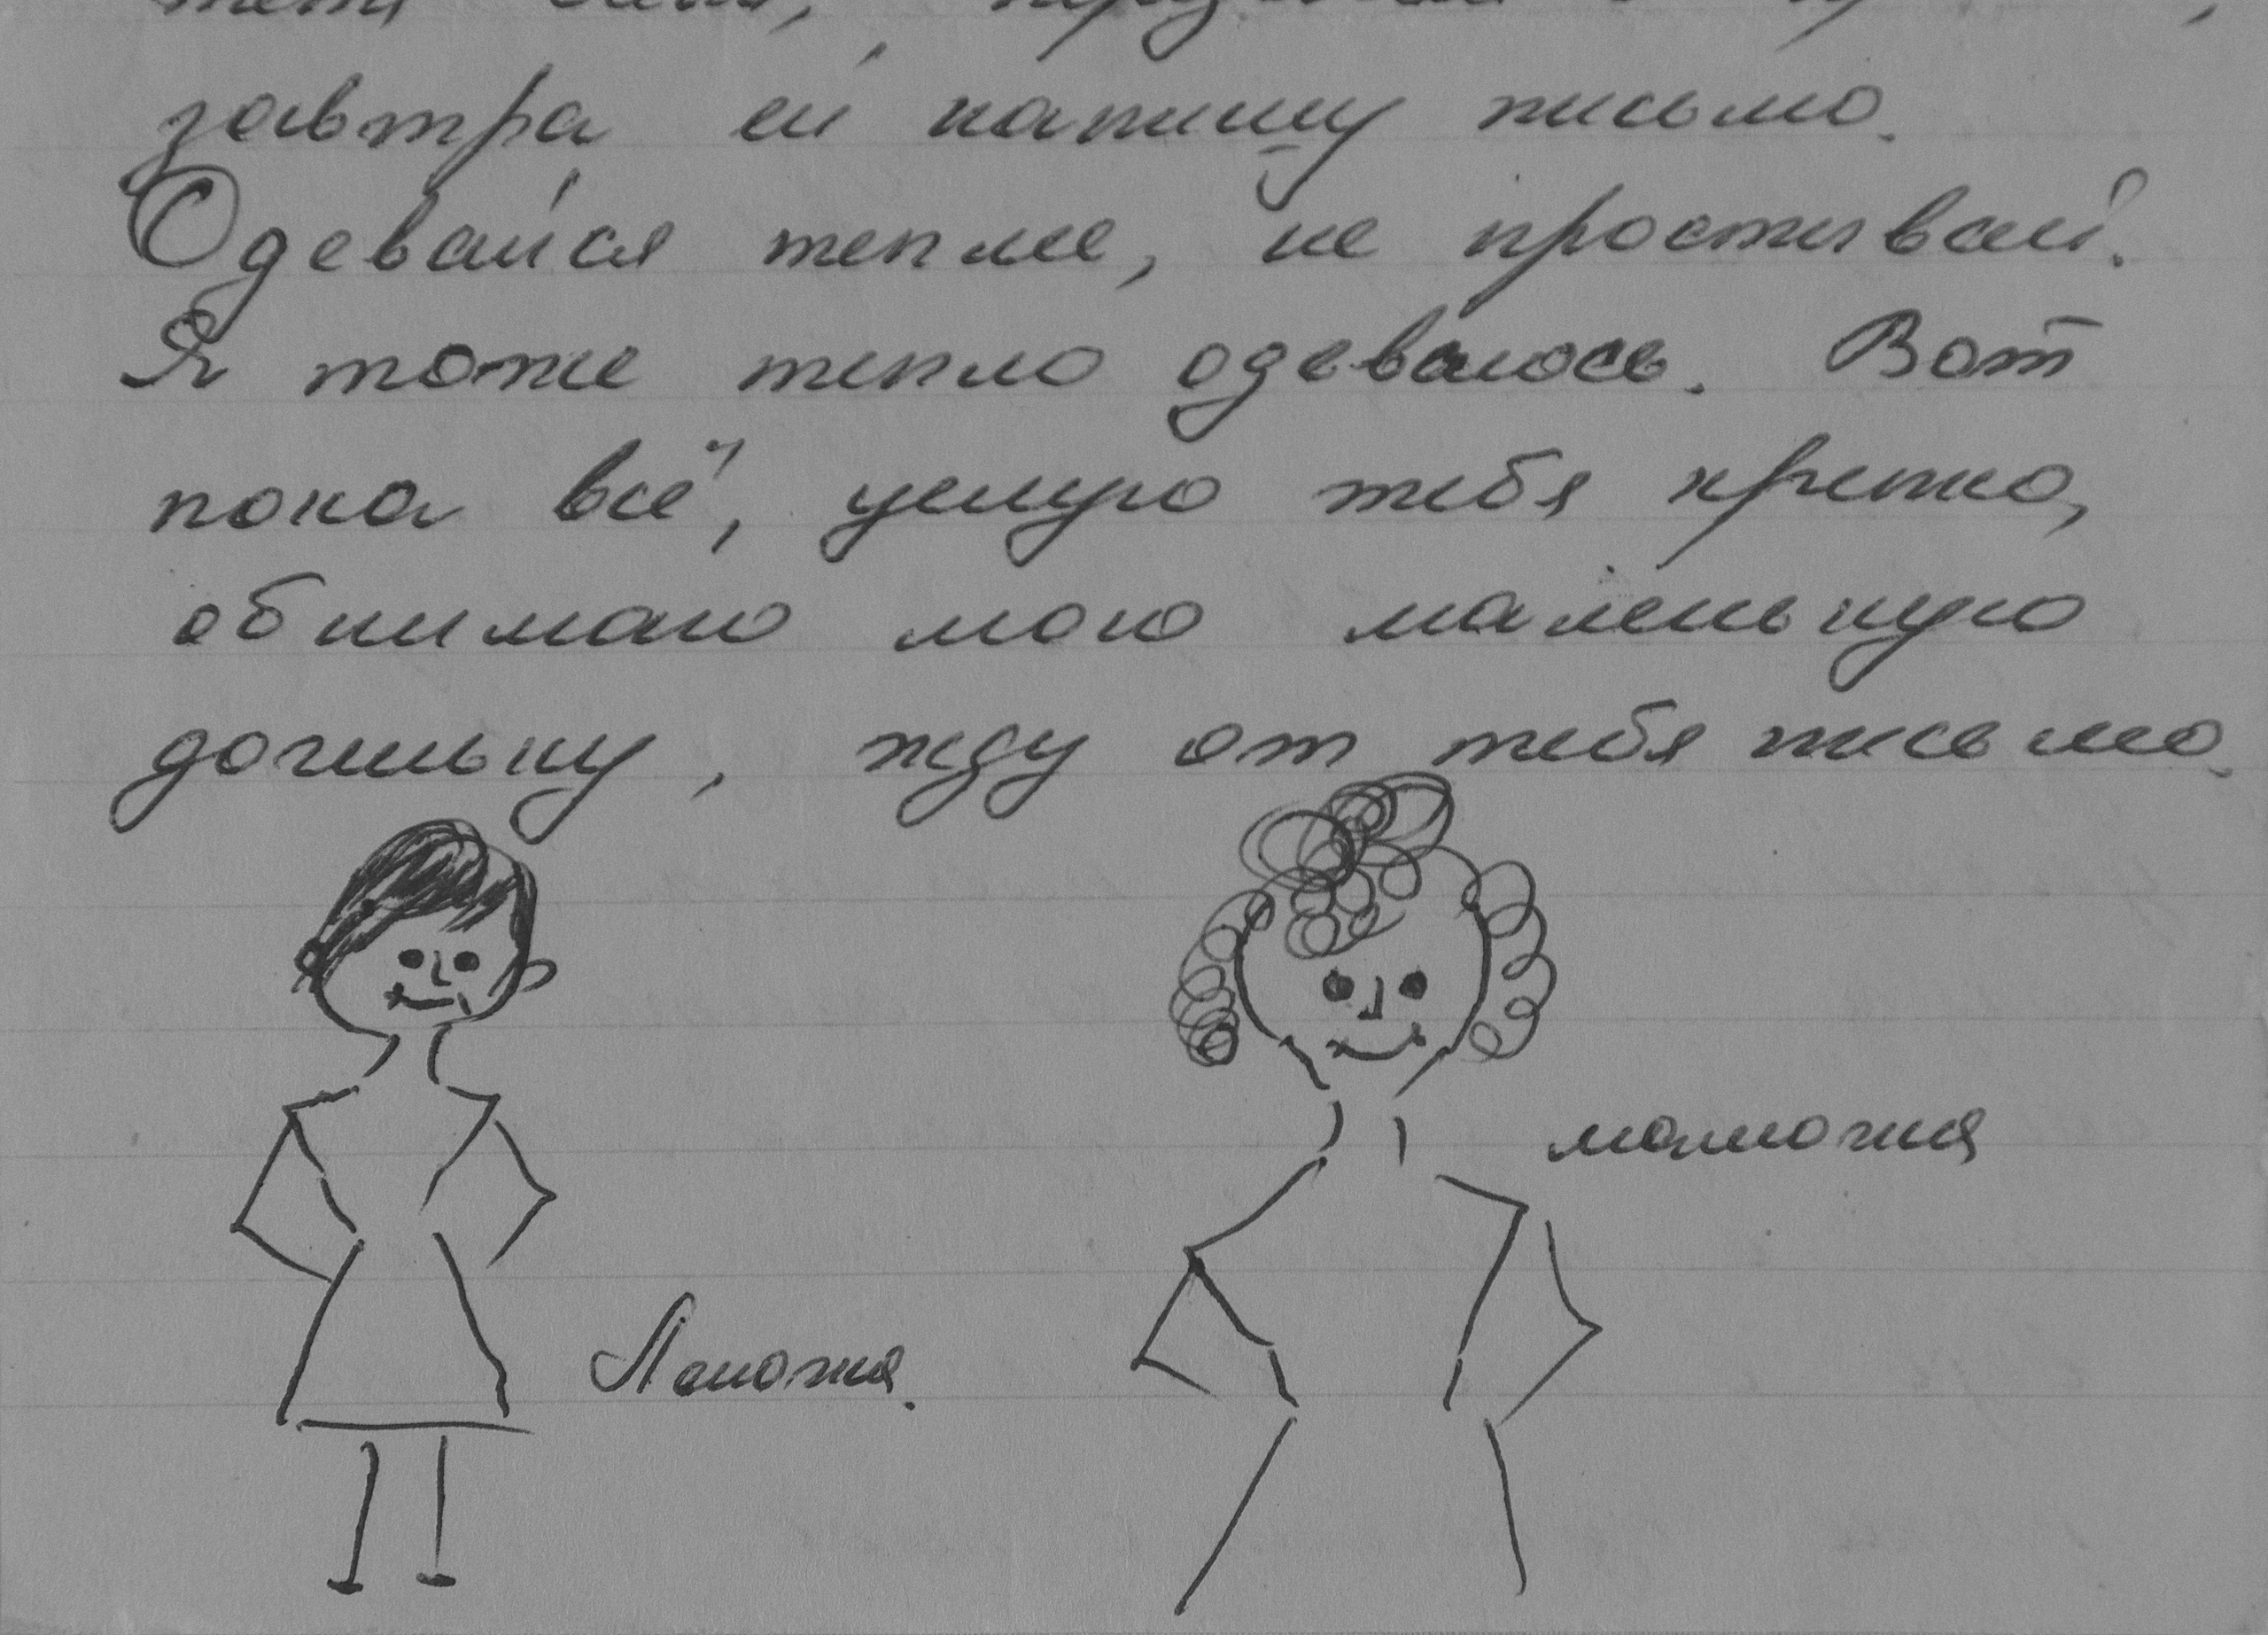 завтра ей напишу письмо.
Одевайся теплее, не простывай.
Я тоже тепло одеваюсь. Вот
пока всё, целую тебя крепко,
обнимаю мою маленькую
доченьку, жду от тебя письмо.
мамочка